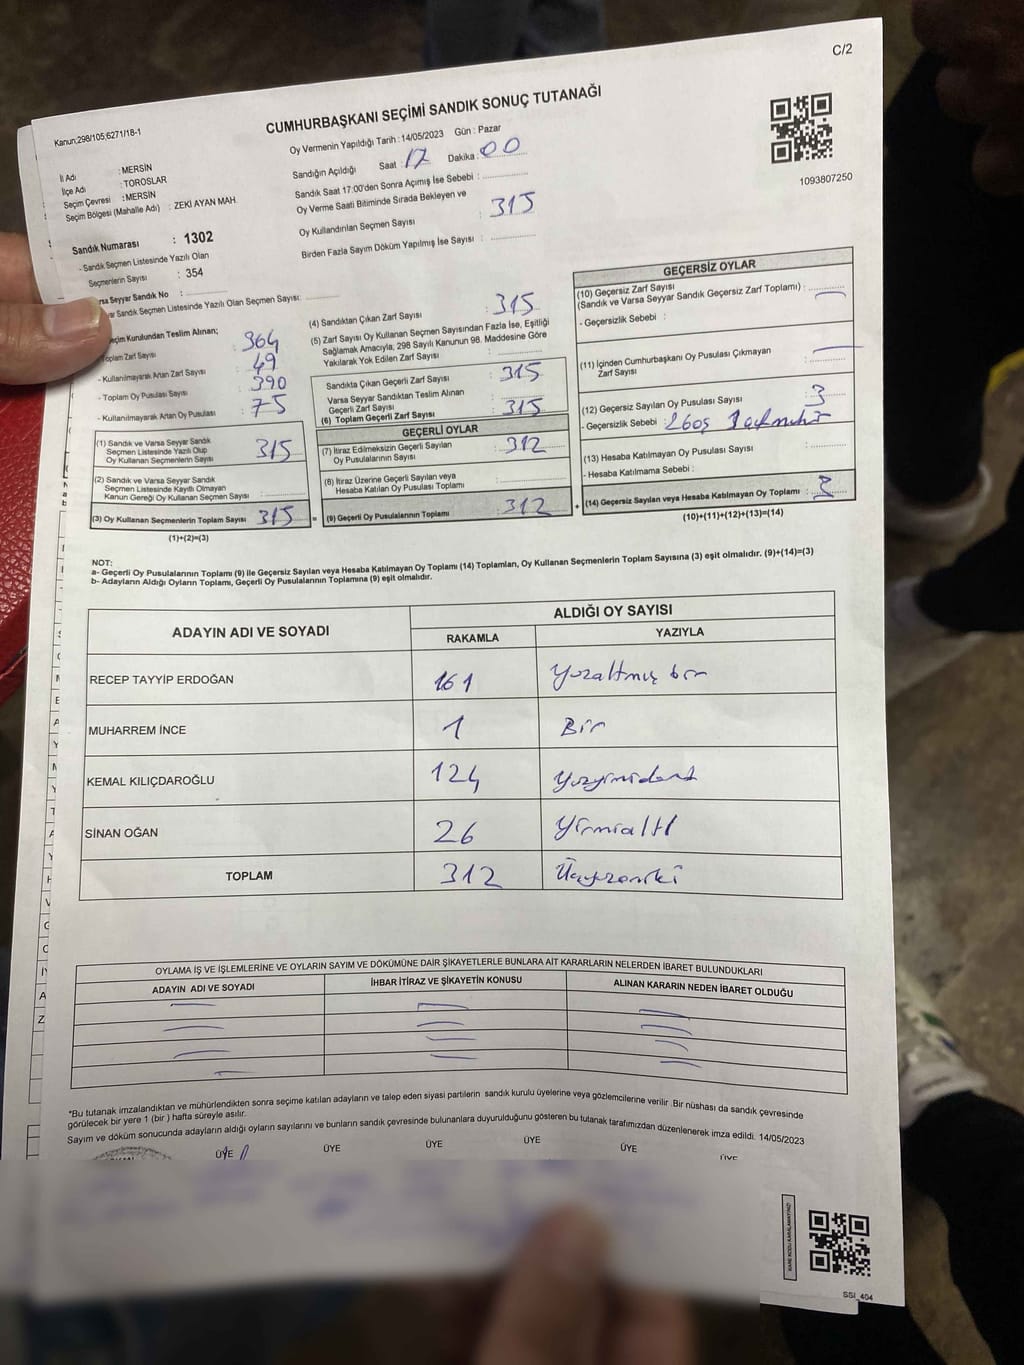 C/2
Kanun:298/105;6271/18-1
CUMHURBAŞKANI SEÇİMİ SANDIK SONUÇ TUTANAĞI
Oy Vermenin Yapıldığı Tarih :14/05/2023 Gün : Pazar
1093807250
İl Adı : MERSİN
İlçe Adı : TOROSLAR
Seçim Çevresi : MERSİN
Seçim Bölgesi (Mahalle Adı) : ZEKİ AYAN MAH.
Sandık Numarası : 1302
- Sandık Seçmen Listesinde Yazılı Olan
Seçmenlerin Sayısı : 354
Varsa Seyyar Sandık No :
Sandık Seçmen Listesinde Yazılı Olan Seçmen Sayısı:
Sandığın Açıldığı Saat : 17 Dakika : 00
Sandık Saat 17:00'den Sonra Açımış İse Sebebi :
Oy Verme Saati Bitiminde Sırada Bekleyen ve
Oy Kullandırılan Seçmen Sayısı : 315
Birden Fazla Sayım Döküm Yapılmış İse Sayısı :
Seçim Kurulundan Teslim Alınan;
Toplam Zarf Sayısı : 364
- Kullanılmayarak Artan Zarf Sayısı : 49
- Toplam Oy Pusulası Sayısı : 390
- Kullanılmayarak Artan Oy Pusulası : 75
(1) Sandık ve Varsa Seyyar Sandık
Seçmen Listesinde Yazılı Olup
Oy Kullanan Seçmenlerin Sayısı : 315
(2) Sandık ve Varsa Seyyar Sandık
Seçmen Listesinde Kayıtlı Olmayan
Kanun Gereği Oy Kullanan Seçmen Sayısı :
(3) Oy Kullanan Seçmenlerin Toplam Sayısı : 315
(1)+(2)=(3)
(4) Sandıktan Çıkan Zarf Sayısı : 315
(5) Zarf Sayısı Oy Kullanan Seçmen Sayısından Fazla İse, Eşitliği
Sağlamak Amacıyla, 298 Sayılı Kanunun 98. Maddesine Göre
Yakılarak Yok Edilen Zarf Sayısı :
Sandıkta Çıkan Geçerli Zarf Sayısı : 315
Varsa Seyyar Sandıktan Teslim Alınan
Geçerli Zarf Sayısı :
(6) Toplam Geçerli Zarf Sayısı : 315
GEÇERLİ OYLAR
(7) İtiraz Edilmeksizin Geçerli Sayılan
Oy Pusulalarının Sayısı : 312
(8) İtiraz Üzerine Geçerli Sayılan veya
Hesaba Katılan Oy Pusulası Toplamı :
= (9) Geçerli Oy Pusulalarının Toplamı : 312
GEÇERSİZ OYLAR
(10) Geçersiz Zarf Sayısı
(Sandık ve Varsa Seyyar Sandık Geçersiz Zarf Toplamı) :
- Geçersizlik Sebebi :
(11) İçinden Cumhurbaşkanı Oy Pusulası Çıkmayan
Zarf Sayısı :
(12) Geçersiz Sayılan Oy Pusulası Sayısı : 3
- Geçersizlik Sebebi :
(13) Hesaba Katılmayan Oy Pusulası Sayısı :
- Hesaba Katılmama Sebebi :
+ (14) Geçersiz Sayılan veya Hesaba Katılmayan Oy Toplamı : 3
(10)+(11)+(12)+(13)=(14)
NOT:
a- Geçerli Oy Pusulalarının Toplamı (9) ile Geçersiz Sayılan veya Hesaba Katılmayan Oy Toplamı (14) Toplamları, Oy Kullanan Seçmenlerin Toplam Sayısına (3) eşit olmalıdır. (9)+(14)=(3)
b- Adayların Aldığı Oyların Toplamı, Geçerli Oy Pusulalarının Toplamına (9) eşit olmalıdır.
ADAYIN ADI VE SOYADI ALDIĞI OY SAYISI
RAKAMLA YAZIYLA
RECEP TAYYİP ERDOĞAN 161 Yüzaltmış bir
MUHARREM İNCE 1 Bir
KEMAL KILIÇDAROĞLU 124 Yüzyirmidört
SİNAN OĞAN 26 Yirmialtı
TOPLAM 312 Üçyüzoniki
OYLAMA İŞ VE İŞLEMLERİNE VE OYLARIN SAYIM VE DÖKÜMÜNE DAİR ŞİKAYETLERLE BUNLARA AİT KARARLARIN NELERDEN İBARET BULUNDUKLARI
ADAYIN ADI VE SOYADI İHBAR İTİRAZ VE ŞİKAYETİN KONUSU ALINAN KARARIN NEDEN İBARET OLDUĞU
*Bu tutanak imzalandıktan ve mühürlendikten sonra seçime katılan adayların ve talep eden siyasi partilerin sandık kurulu üyelerine veya gözlemcilerine verilir .Bir nüshası da sandık çevresinde
görülecek bir yere 1 (bir ) hafta süreyle asılır.
Sayım ve döküm sonucunda adayların aldığı oyların sayılarını ve bunların sandık çevresinde bulunanlara duyurulduğunu gösteren bu tutanak tarafımızdan düzenlenerek imza edildi. 14/05/2023
ÜYE ÜYE ÜYE ÜYE ÜYE ÜYE
KARE KODU KARALAMAYINIZ!
SSI_404